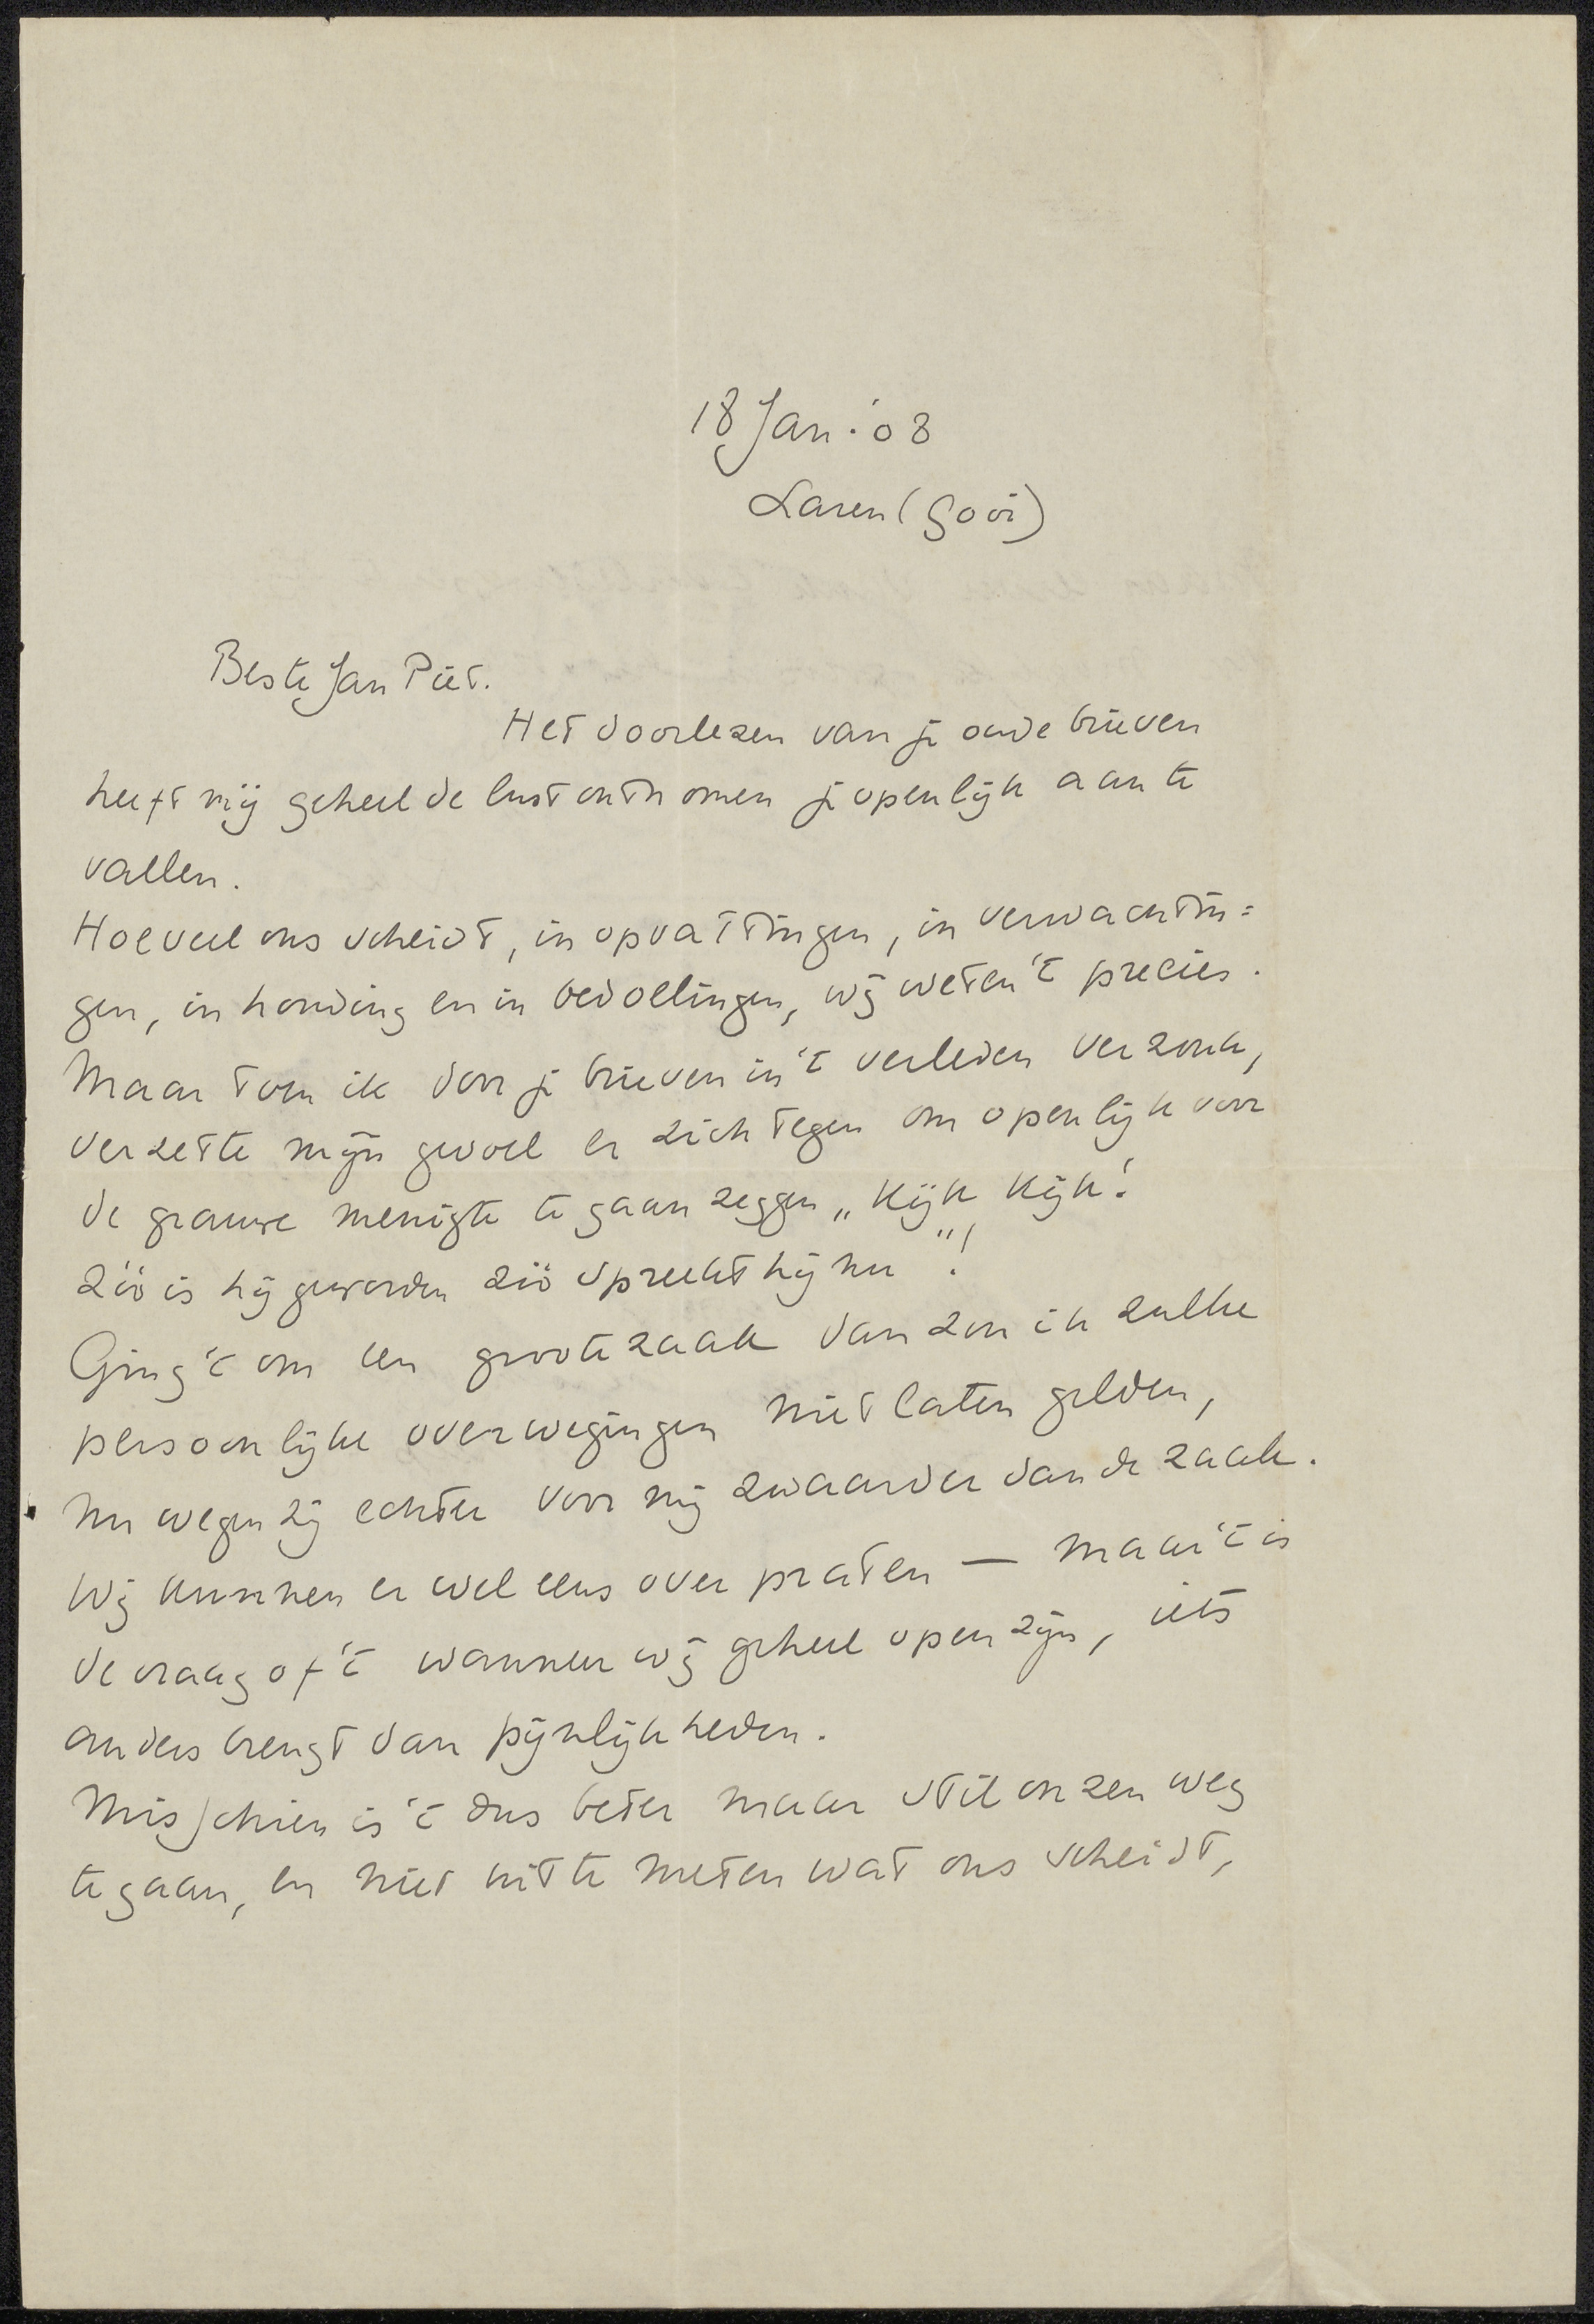 18 Jan. '08
Laren (Gooi)
Beste Jan Piet.
Het doorlezen van je oude brieven
heeft mij geheel de lust ontnomen je openlijk aan te
vallen.
Hoeveel ons scheidt, in opvattingen, in verwachtin=
gen, in houding en in bedoelingen, wij weten 't precies.
Maar toen ik door je brieven in 't verleden verzonk,
verzette mijn gevoel er zich tegen om openlijk voor
de grauwe menigte te gaan zeggen „Kijk Kijk!
zóó is hij geworden zóó spreekt hij nu"!
Ging 't om een groote zaak dan zou ik zulke
persoonlijke overwegingen niet laten gelden,
nu wegen zij echter voor mij zwaarder dan de zaak.
Wij kunnen er wel eens over praten — maar 't is
de vraag of 't wanneer wij geheel open zijn, iets
anders brengt dan pijnlijkheden.
Misschien is 't dus beter maar stil onzen weg
te gaan, en niet uit te meten wat ons scheidt,